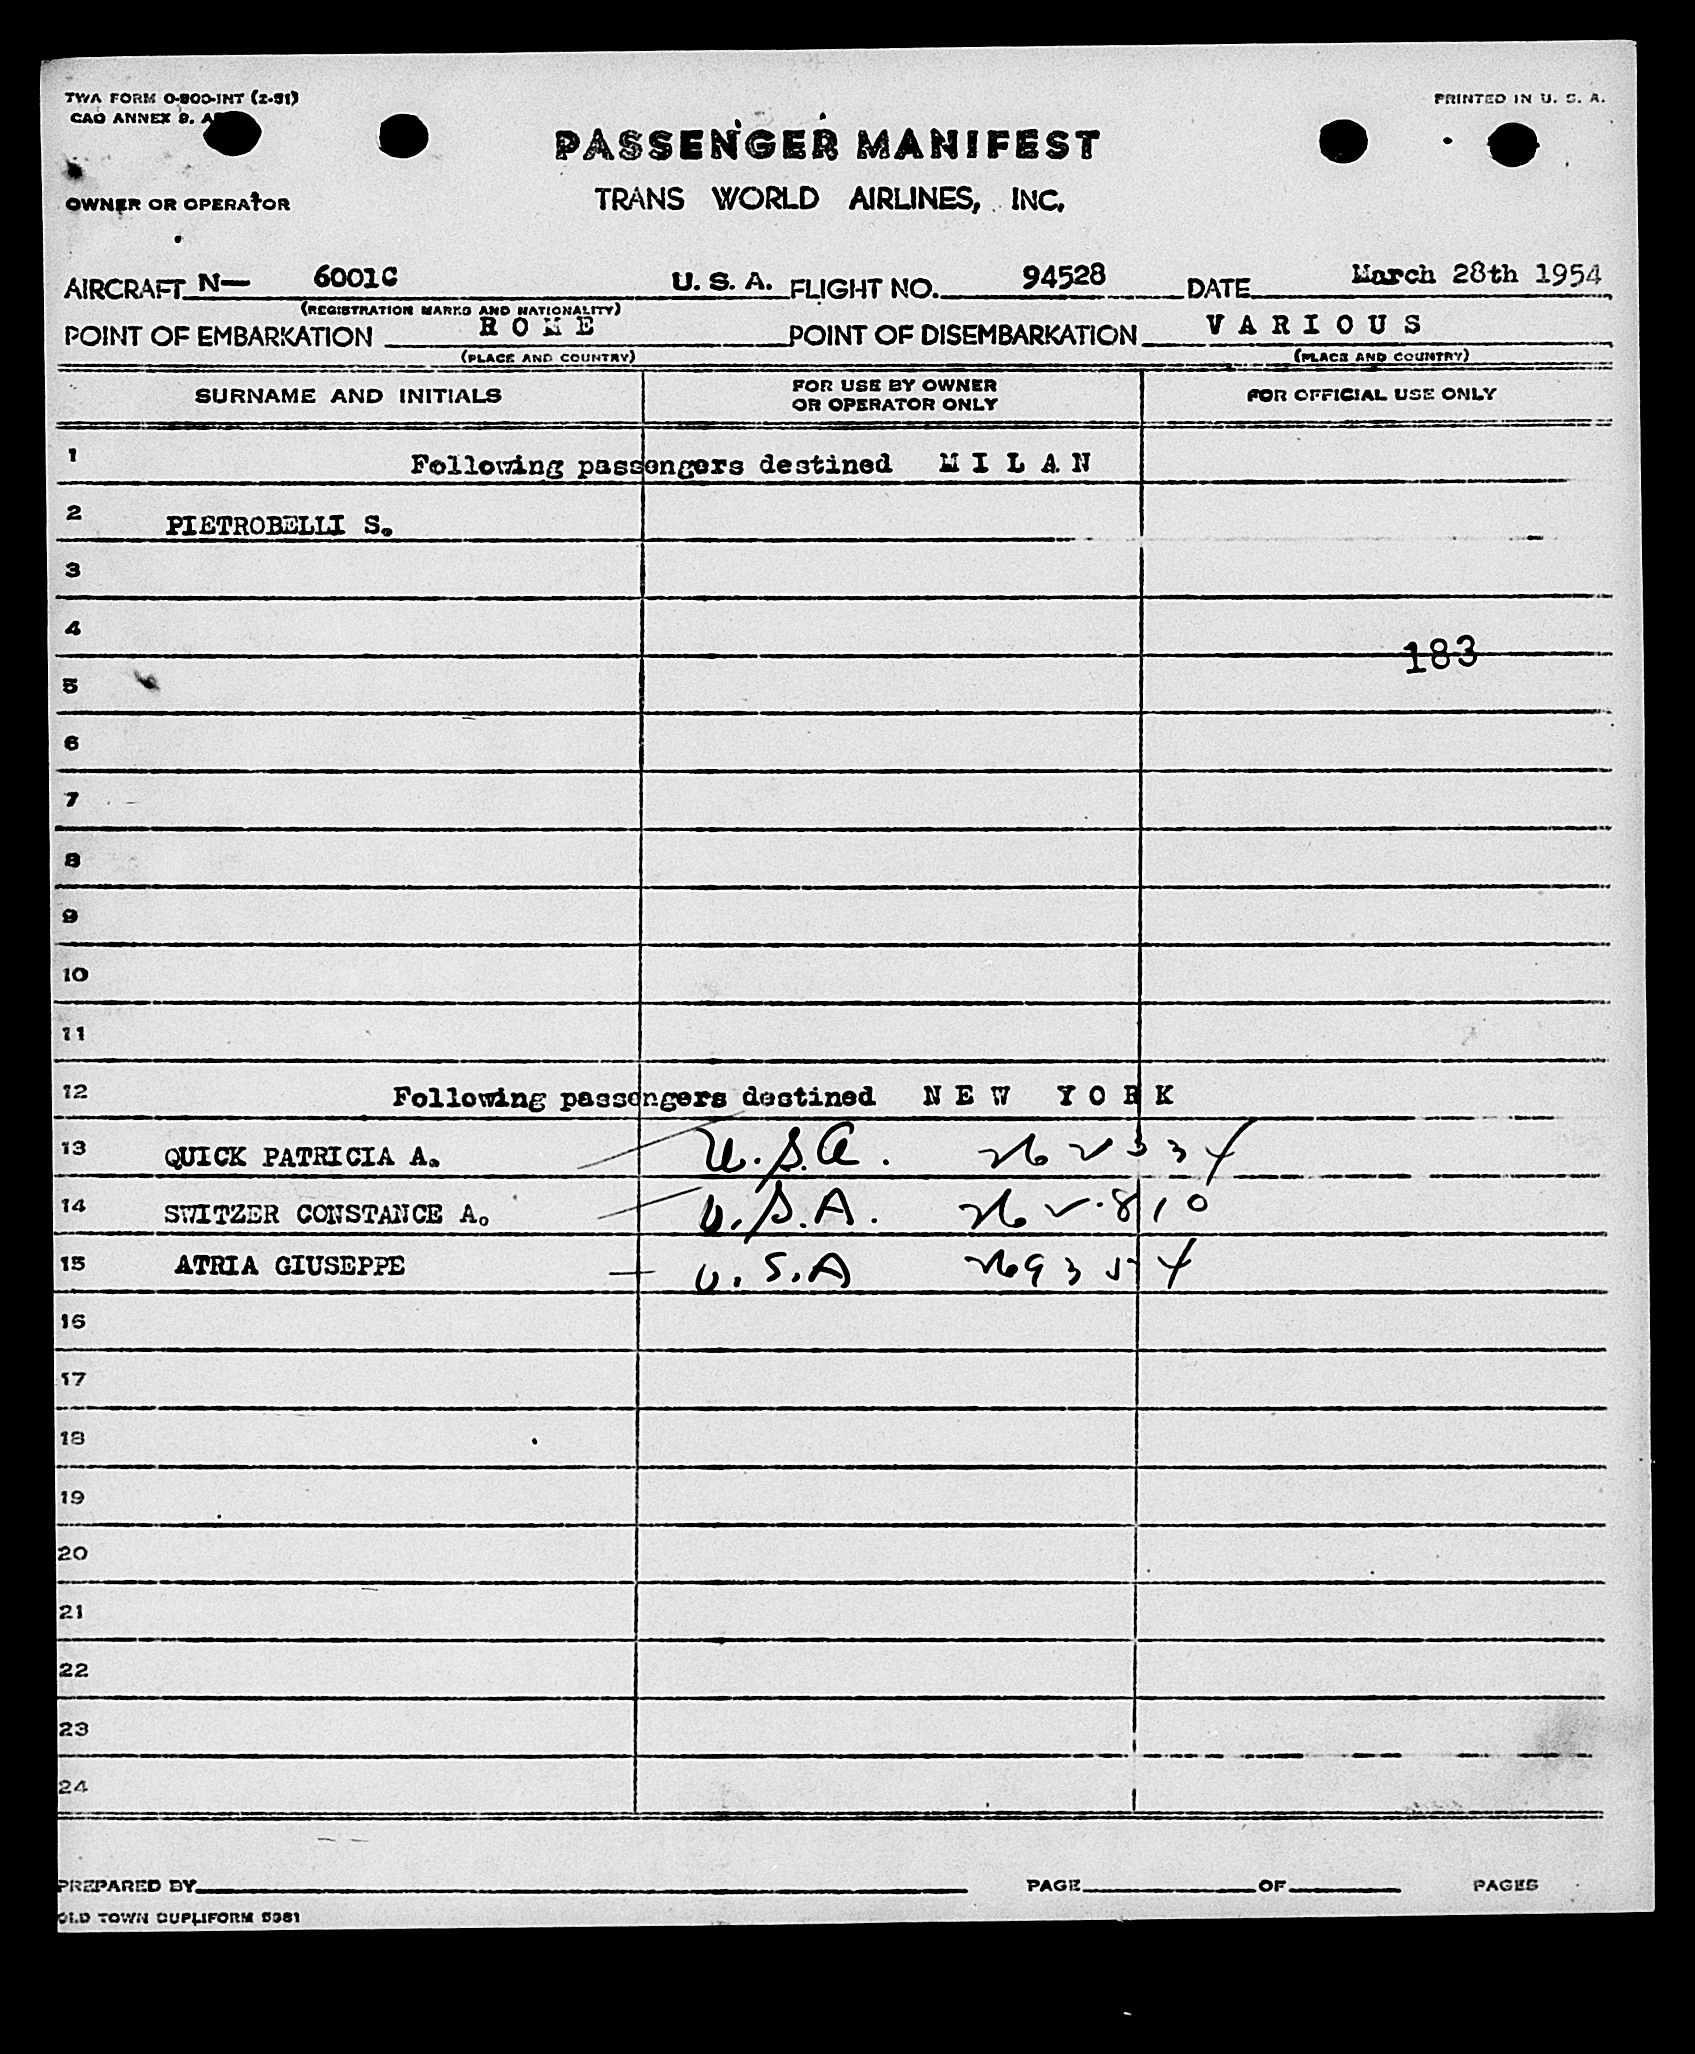 TWA FORM O-800-INT (2-51)
PRINTED IN U. S. A.
CAO ANNEX 9.
PASSENGER MANIFEST
OWNER OR OPERATOR
TRANS WORLD AIRLINES, INC.
AIRCRAFT N— 6001C U. S. A. FLIGHT NO. 94528 DATE March 28th 1954
(REGISTRATION MARKS AND NATIONALITY)
POINT OF EMBARKATION R O M E POINT OF DISEMBARKATION V A R I O U S
(PLACE AND COUNTRY) (PLACE AND COUNTRY)
SURNAME AND INITIALS FOR USE BY OWNER OR OPERATOR ONLY FOR OFFICIAL USE ONLY
1 Following passengers destined M I L A N
2 PIETROBELLI S.
3
4
183
5
6
7
8
9
10
11
12 Following passengers destined N E W Y O R K
13 QUICK PATRICIA A. U.S.A.
14 SWITZER CONSTANCE A. U.S.A.
15 ATRIA GIUSEPPE U.S.A
16
17
18
19
20
21
22
23
24
PREPARED BY PAGE OF PAGES
OLD TOWN DUPLIFORM 5981